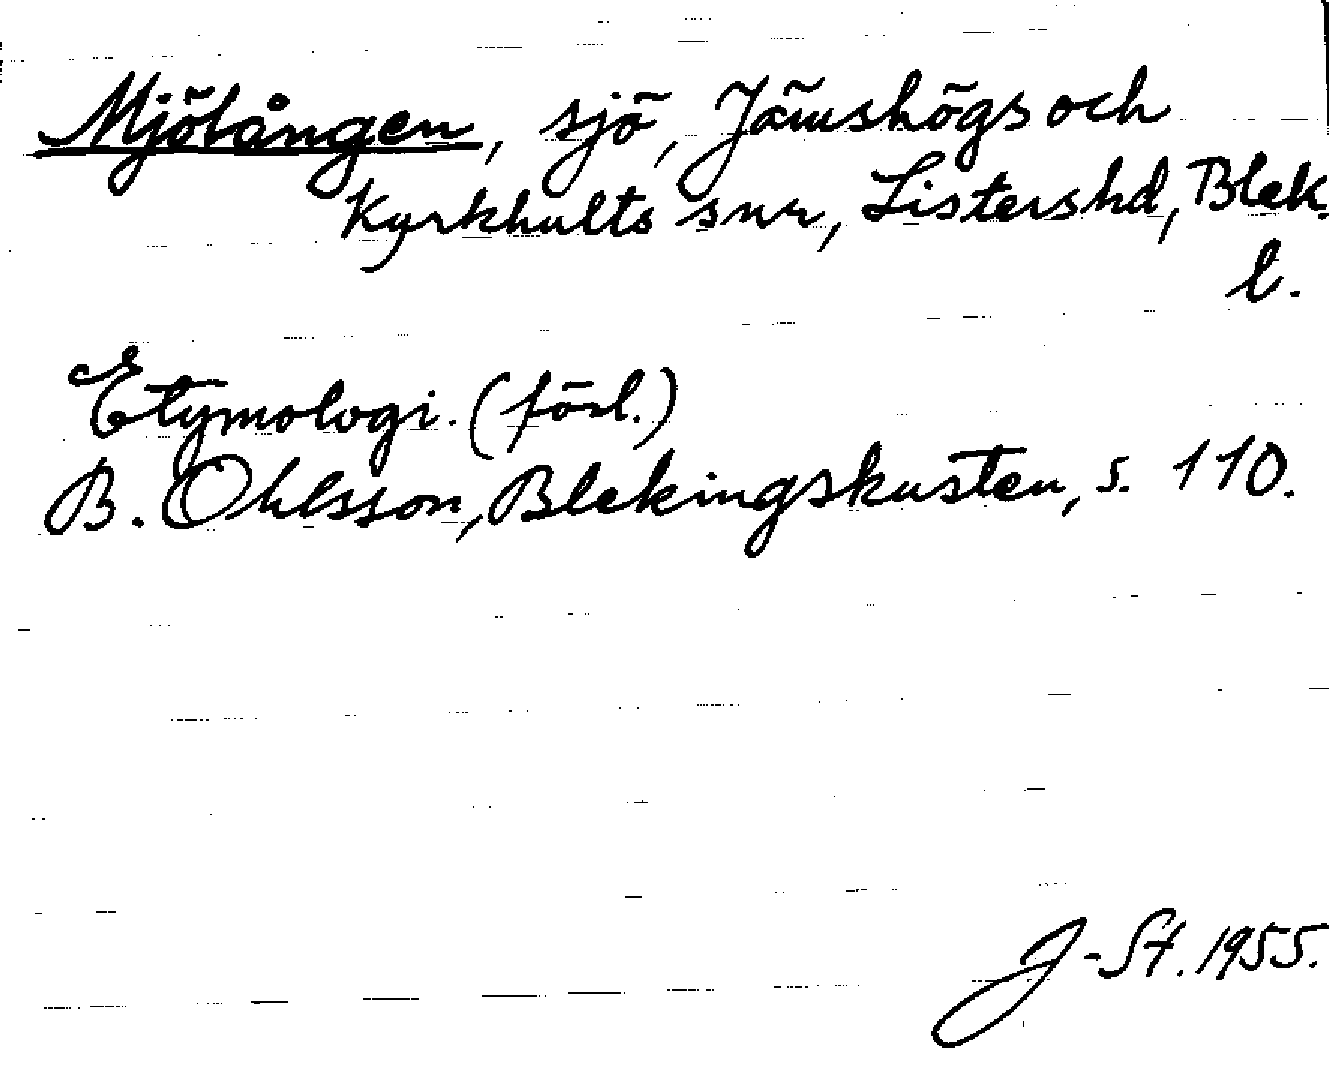 Mjölången, sjö, Jämshögs och
Kyrkhults snr, Listers hd, Blek.
l.
Etymologi. (förl.)
B. Ohlsson, Blekingskusten, s. 110.
J-St. 1955.